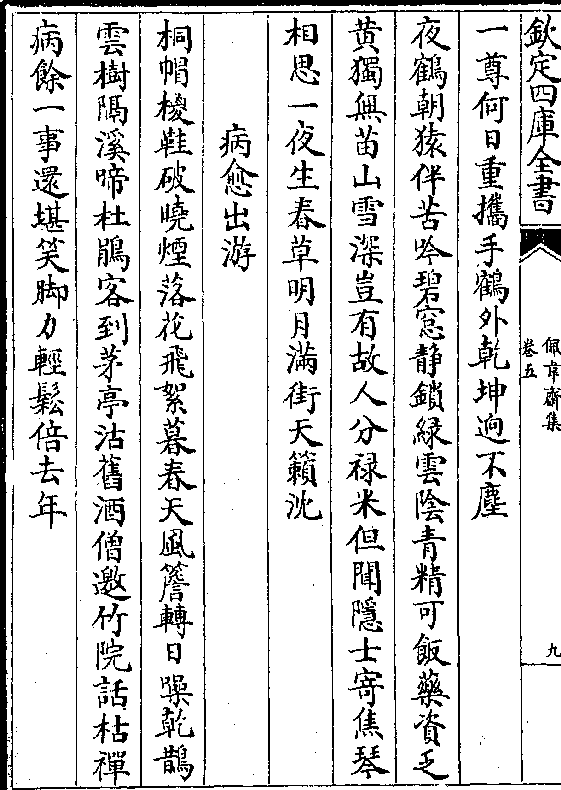 欽定四庫全書
佩韋齋集
卷五
九
一尊何日重攜手鶴外乾坤逈不塵
夜鶴朝猿伴苦吟碧窓静鎖緑雲陰青精可飯藥資乏
黄獨無苗山雪深豈有故人分禄米但聞隱士寄焦琴
相思一夜生春草明月滿街天籟沈
病愈出游
桐帽椶鞋破曉煙落花飛絮暮春天風簷轉日噪乾鵲
雲樹隔溪啼杜鵑客到茅亭沽舊酒僧邀竹院話枯禪
病餘一事還堪笑脚力輕鬆倍去年